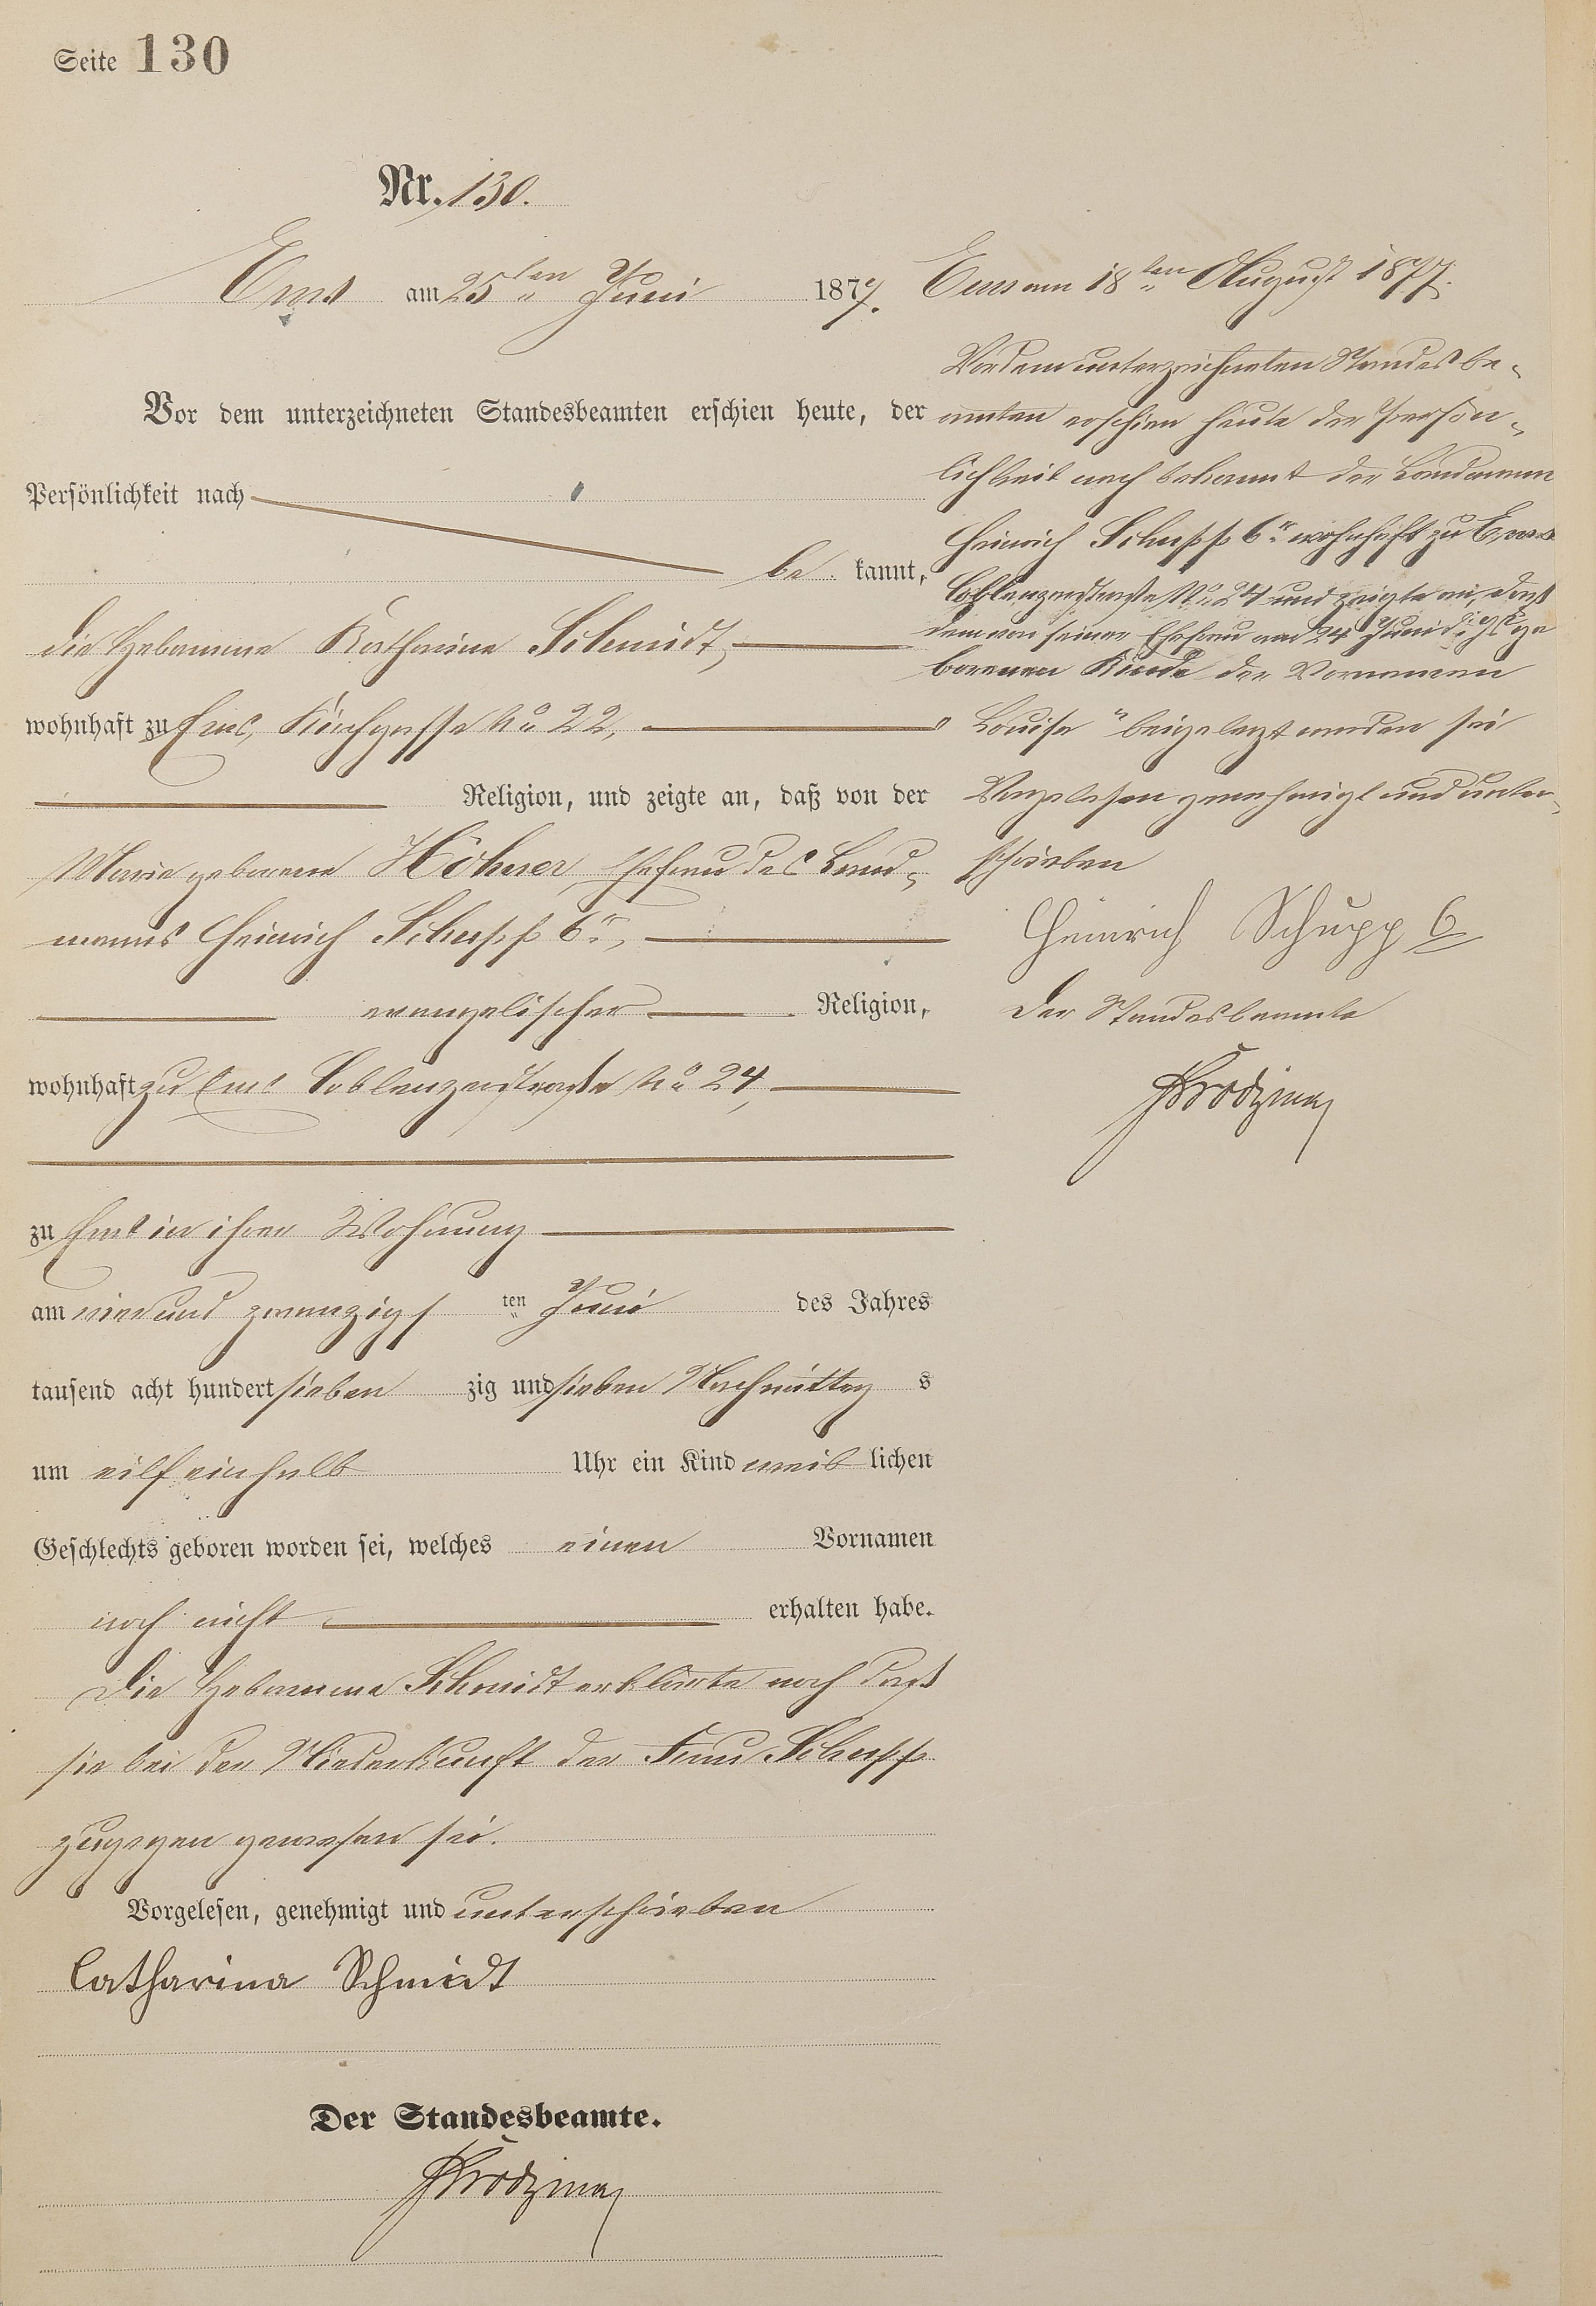 Seite 130
Nr. 130.
Ems am 25ten Juni 1877.
Vor dem unterzeichneten Standesbeamten erschien heute, der
Persönlichkeit nach
be kannt,
die Hebamme Katharina Schmidt,
wohnhaft zu Ems, Kirchgasse No 22,
Religion, und zeigte an, daß von der
Marie geborene Höhner, Ehefrau des Land-
manns Heinrich Schupp 6r,
evangelischer Religion,
wohnhaft zu Ems Coblenzerstraße No 24,
zu Ems in ihrer Wohnung
am vierundzwanzigs ten Juni des Jahres
tausend acht hundert sieben zig und sieben Nachmittag s
um eilf einhalb Uhr ein Kind weib lichen
Geschlechts geboren worden sei, welches einen Vornamen
noch nicht erhalten habe.
Die Hebamme Schmidt erklärte noch daß
sie bei der Niederkunft der Frau Schupp
zugegen gewesen sei.
Vorgelesen, genehmigt und unterschrieben
Catharina Schmidt
Der Standesbeamte.
Ems am 18ten August 1877.
Vor dem unterzeichneten Standesbe-
amten erschien heute der Persön-
lichkeit nach bekannt der Landmann
Heinrich Schupp 6r wohnhaft zu Ems
Coblenzerstraße No 24 und zeigte an, daß
dem von seiner Ehefrau am 24 Juni d. Js. ge
borenen Kinde der Vornamen
„Louise" beigelegt worden sei
Vorgelesen genehmigt und unter-
schrieben
Heinrich Schupp 6
Der Standesbeamte